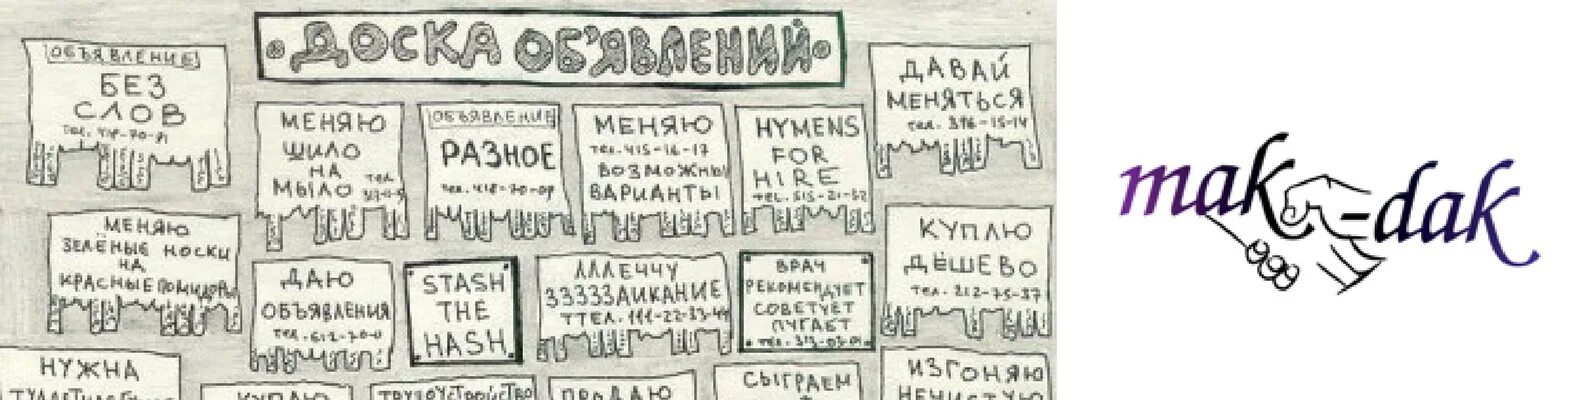 ДОСКА ОБ'ЯВЛЕНИЙ
ОБЪЯВЛЕНИЕ
БЕЗ
СЛОВ
МЕНЯЮ
ШИЛО
НА
МЫЛО
тел.
ОБЪЯВЛЕНИЕ
РАЗНОЕ
МЕНЯЮ
тел. 415-16-17
ВОЗМОЖНЫ
ВАРИАНТЫ
HYMENS
FOR
HIRE
TEL. 515-21-52
ДАВАЙ
МЕНЯТЬСЯ
тел. 376-15-14
МЕНЯЮ
ЗЕЛЁНЫЕ НОСКИ
НА
КРАСНЫЕ ПОМИДОРЫ
ДАЮ
ОБЪЯВЛЕНИЯ
STASH
THE
HASH
ЛЛЛЕЧЧУ
ЗЗЗЗЗАИКАНИЕ
ТТЕЛ. 111-22-33-44
ВРАЧ
РЕКОМЕНДУЕТ
СОВЕТУЕТ
ПУГАЕТ
КУПЛЮ
ДЁШЕВО
тел. 212-75-37
НУЖНА
КУПЛЮ
ТРУДОУСТРОЙСТВО
ПРОДАЮ
СЫГРАЕМ
ИЗГОНЯЮ
НЕЧИСТУЮ
mak-dak